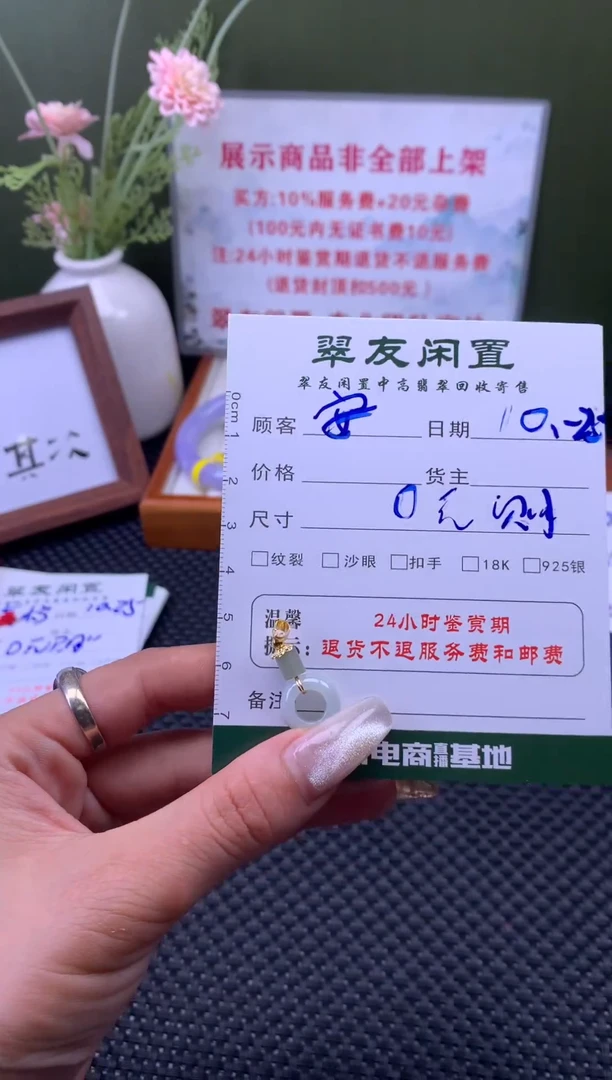 展示商品非全部上架
买方:10%服务费+20元杂费
(100元内无证书费10元)
注:24小时鉴赏期退货不退服务费
(退货封顶扣500元)
其次
翠友闲置
翠友闲置中高翡翠回收寄售
顾客 安 日期 10.25
价格 货主
尺寸 0元
纹裂 沙眼 扣手 18K 925银
温馨
提示:
24小时鉴赏期
退货不退服务费和邮费
备注
电商直播基地
0cm 1 2 3 4 5 6 7
翠友闲置